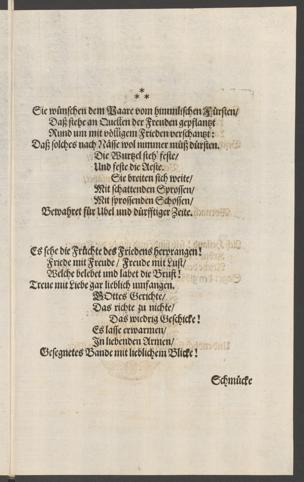 * * *
Sie wünschen dem Paare vom himmlischen Fürsten/
Daß stehe an Quellen der Freuden gepflantzt
Rund um mit völligem Frieden verschantzt:
Daß solches nach Nässe wol nimmer müß dürsten.
Die Wurtzel steh' feste/
Und feste die Aeste.
Sie breiten sich weite/
Mit schattenden Sprossen/
Mit sprossenden Schossen/
Bewahret für Ubel und dürfftiger Zeite.
Es sehe die Früchte des Friedens herprangen!
Friede mit Freude/ Freude mit Lust/
Welche belebet und labet die Brust!
Treue mit Liebe gar lieblich umfangen.
GOttes Gerichte/
Das richte zu nichte/
Das wiedrig Geschicke!
Es lasse erwarmen/
In liebenden Armen/
Gesegnetes Bande mit lieblichem Blicke!
Schmücke